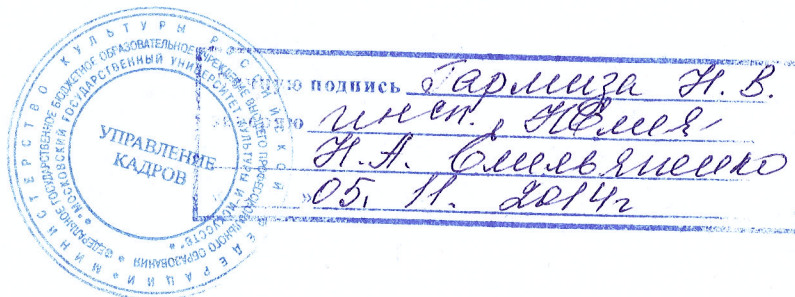 МИНИСТЕРСТВО КУЛЬТУРЫ РОССИЙСКОЙ ФЕДЕРАЦИИ
ФЕДЕРАЛЬНОЕ ГОСУДАРСТВЕННОЕ БЮДЖЕТНОЕ ОБРАЗОВАТЕЛЬНОЕ УЧРЕЖДЕНИЕ ВЫСШЕГО ПРОФЕССИОНАЛЬНОГО ОБРАЗОВАНИЯ
"МОСКОВСКИЙ ГОСУДАРСТВЕННЫЙ УНИВЕРСИТЕТ КУЛЬТУРЫ И ИСКУССТВ"
УПРАВЛЕНИЕ
КАДРОВ
подпись Гармиза Н. В.
инсп.
Н.А. Емельяненко
05. 11. 2014г